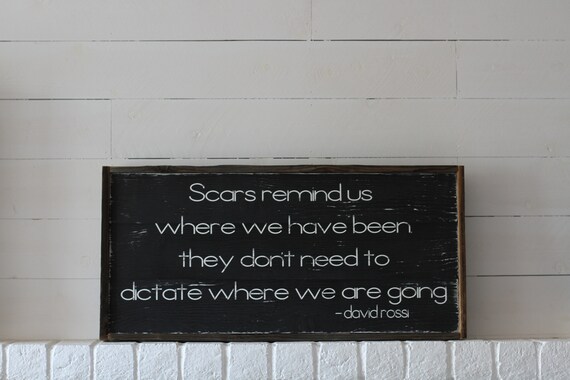 Scars remind us
where we have been
they don't need to
dictate where we are going
-david rossi